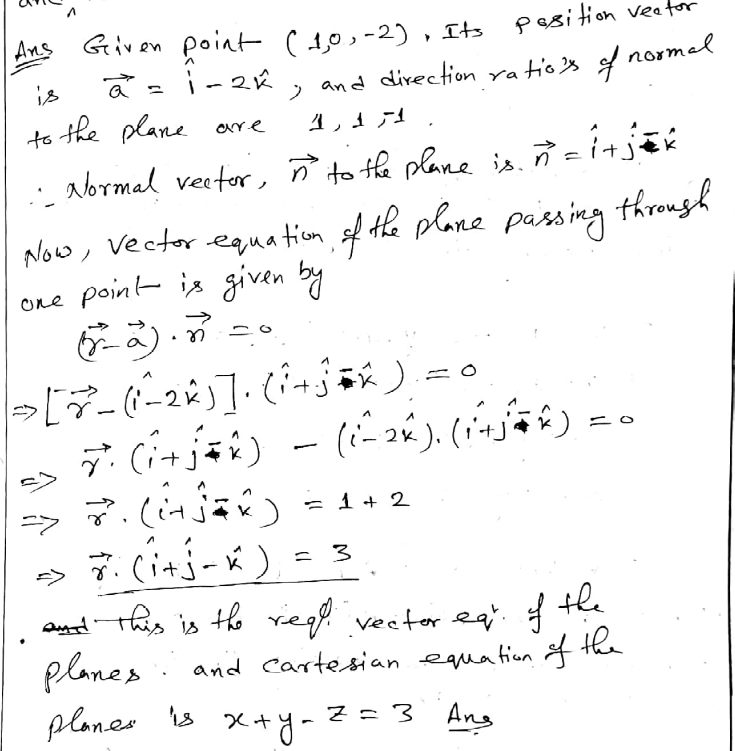 Ans Given point (1,0,-2), Its position vector
is a⃗ = î - 2k̂, and direction ratio's of normal
to the plane are 1, 1, -1.
∴ Normal vector, n⃗ to the plane is. n⃗ = î + ĵ - k̂
Now, vector equation of the plane passing through
one point is given by
(r⃗ - a⃗) . n⃗ = 0
⇒ [r⃗ - (î - 2k̂)] . (î + ĵ - k̂) = 0
⇒ r⃗ . (î + ĵ - k̂) - (î - 2k̂) . (î + ĵ - k̂) = 0
⇒ r⃗ . (î + ĵ - k̂) = 1 + 2
⇒ r⃗ . (î + ĵ - k̂) = 3
This is the reqd. vector eqn. of the
planes. and cartesian equation of the
planes is x + y - z = 3 Ans